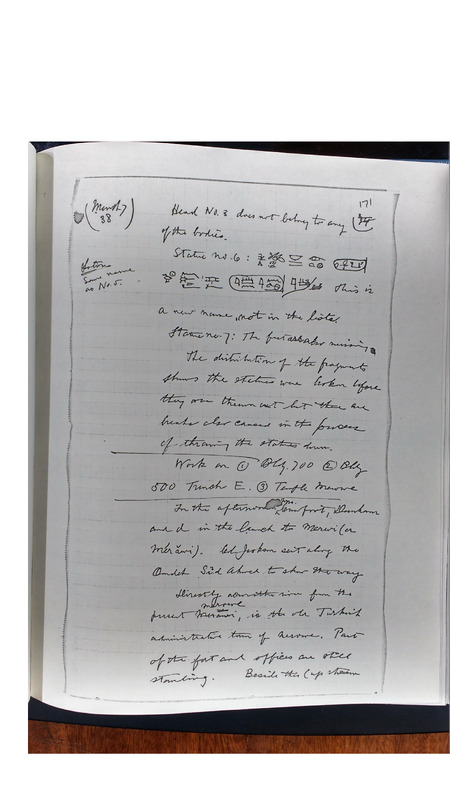 171
Head No. 3 does not belong to any
of the bodies.
Statue no. 6:
Same name
as No. 5.
This is
a new name, not in the lists.
Statue no. 7: The feet are also missing.
The distribution of the fragments
shows the statues were broken before
they were thrown out but there are
breaks also caused in the process
of throwing the statues down.
Work on ① Bldg. 700 ② Bldg
500 Trench E. ③ Temple
In the afternoon
and I in the launch to Merwi (or
Merâwi). sent along the
Omdeh Sîd Ahmed to show the way
Directly the river from the
present Merâwi, is the old Turkish
administrative town of Merowe. Part
of the fort and offices are still
standing. Beside this (up stream